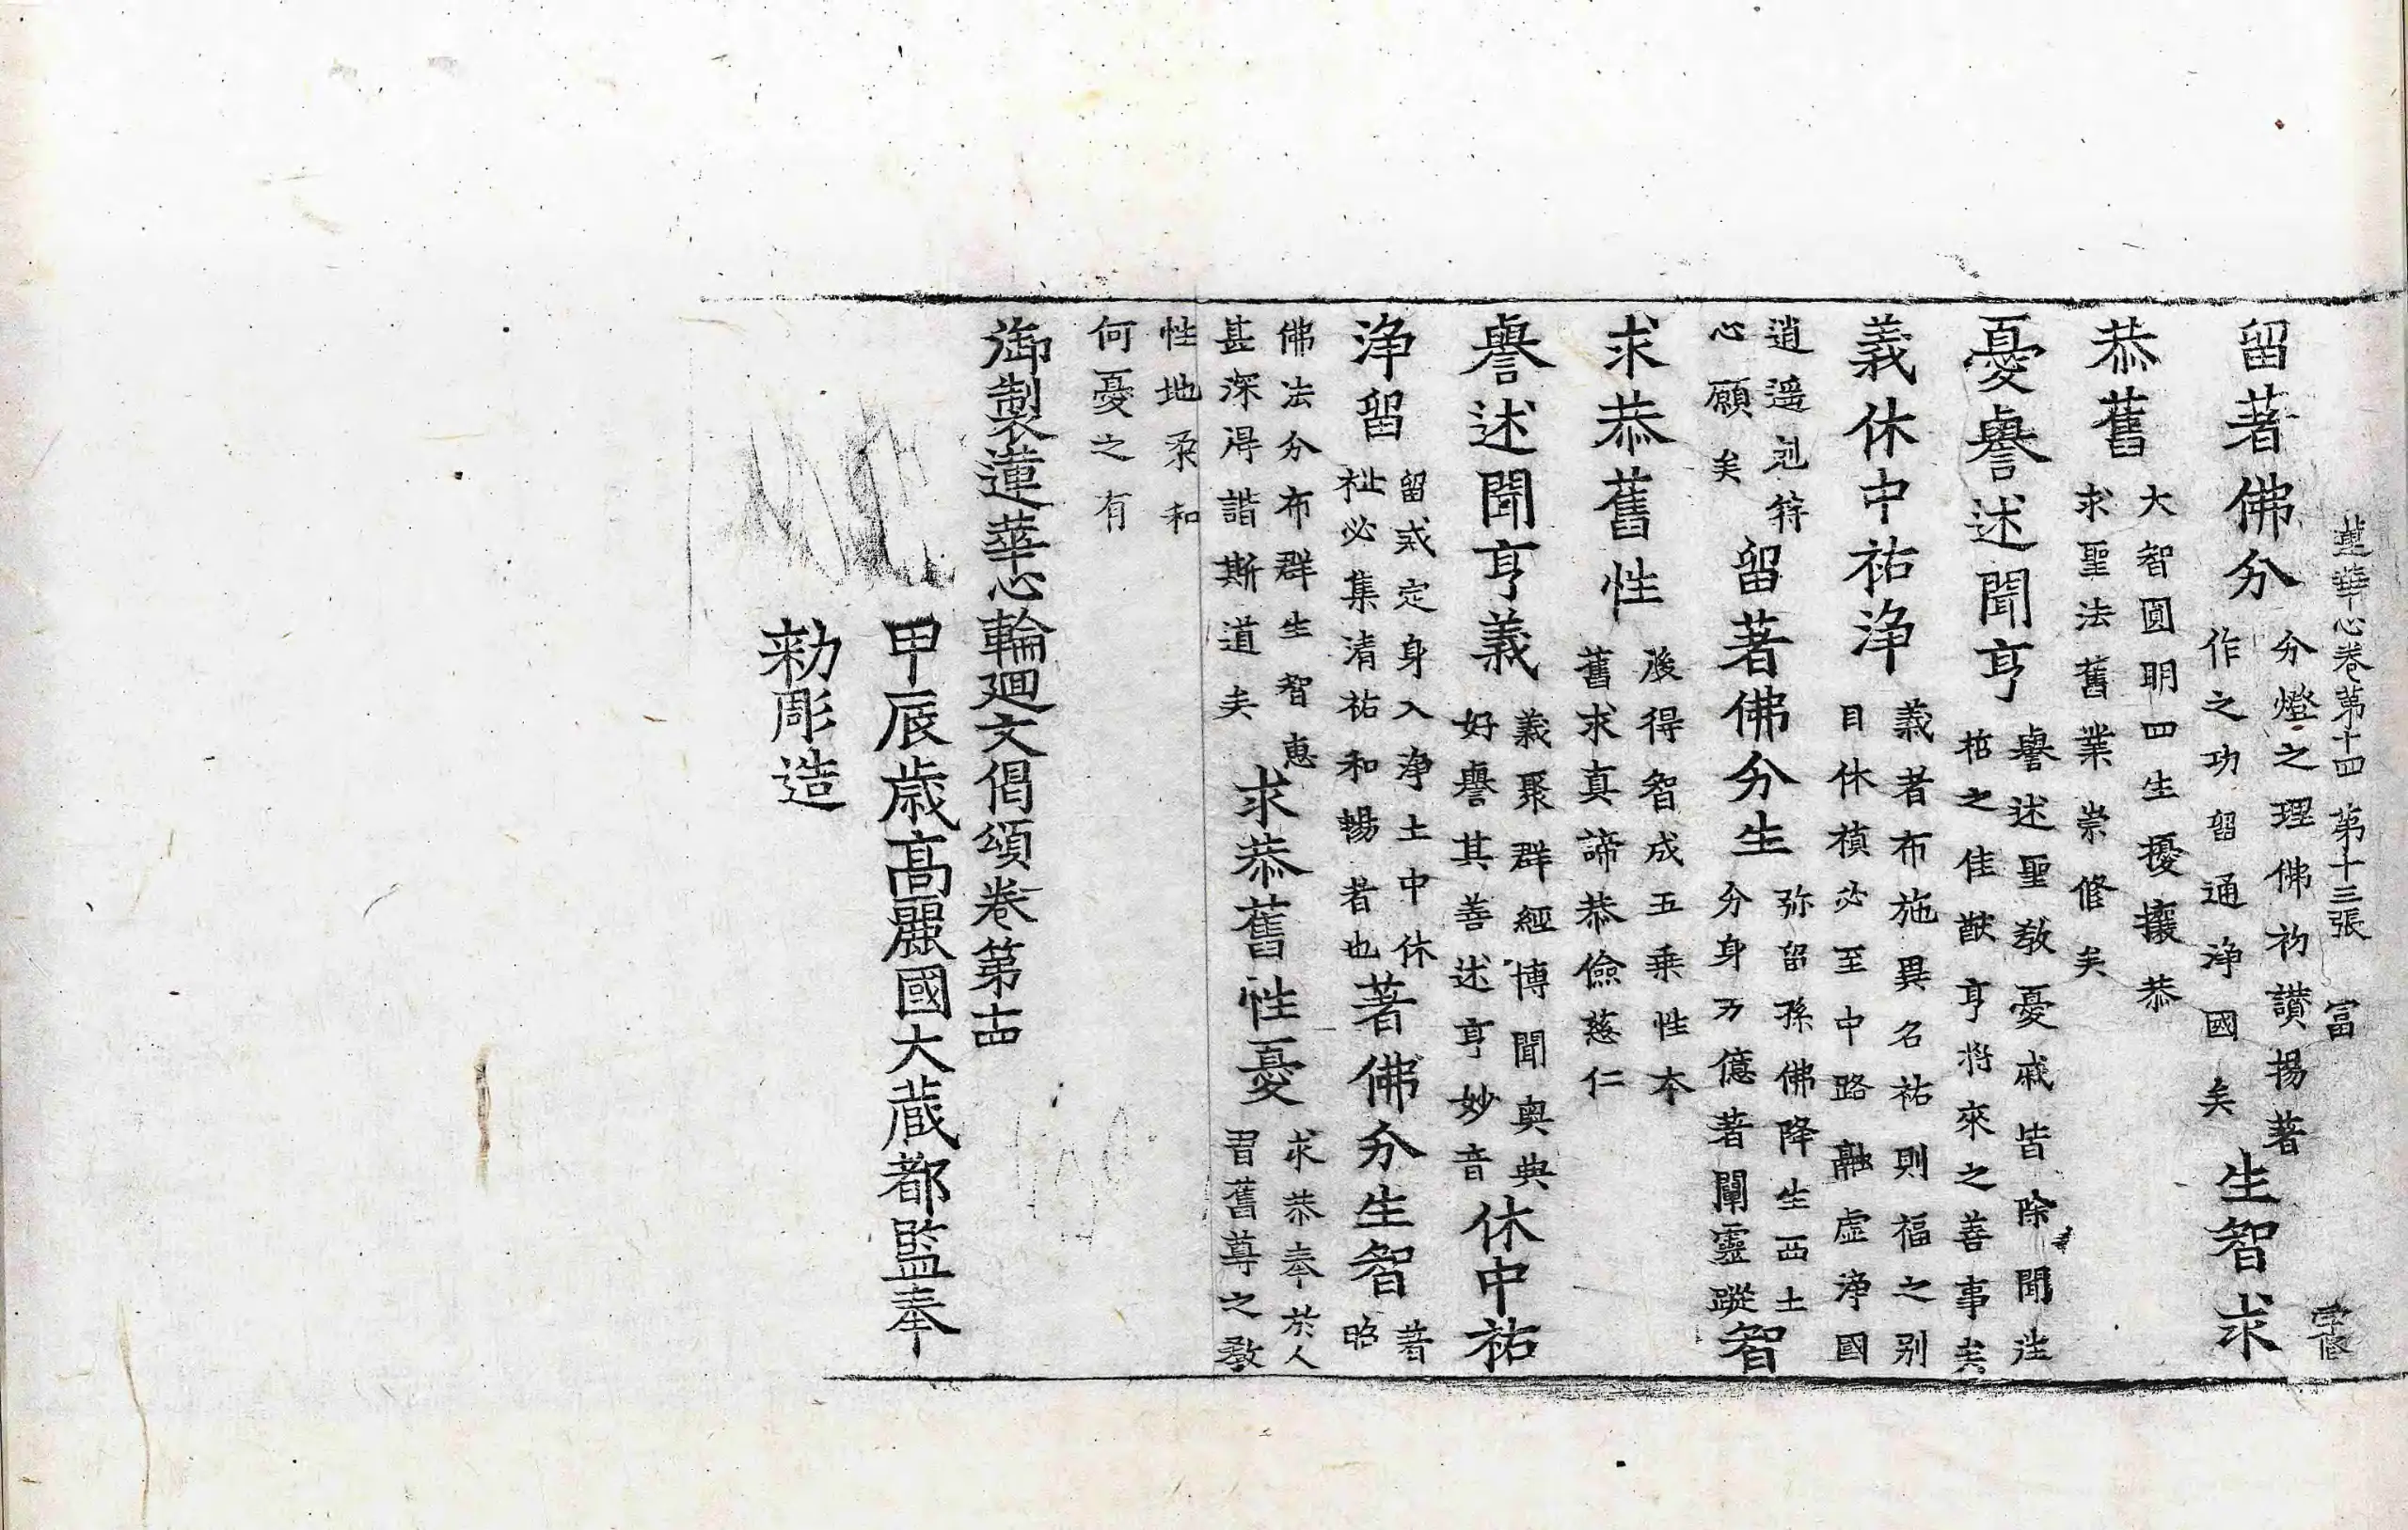 蓮華心卷第十四 第十三張 富
留著佛分 分燈之理佛初讃揚著 作之功留通浄國矣 生智求
恭舊 大智圓明四生擾攘恭 求聖法舊業崇修矣
憂譽述聞亨 譽述聖教憂戚皆除聞往 枯之佳猷亨將來之善事矣
義休中祐浄 義者布施異名祐則福之别 目休禎必至中路融虚浄國
逍遥剋符 心願矣 留著佛分生 弥留孫佛降生西土 分身万億著闡靈蹤 智
求恭舊性 後得智成五乗性本 舊求真諦恭儉慈仁
譽述聞亨義 義聚群經博聞奥典 好譽其善述亨妙音 休中祐
浄留 留或定身入浄土中休 祉必集清祐和暢者也 著佛分生智 著 昭
佛法分布群生智惠 甚深得諧斯道矣 求恭舊性憂 求恭奉於人 習舊尊之教
性地柔和 何憂之有
御製蓮華心輪廻文偈頌卷第十四
甲辰歳高麗國大蔵都監奉
勑彫造